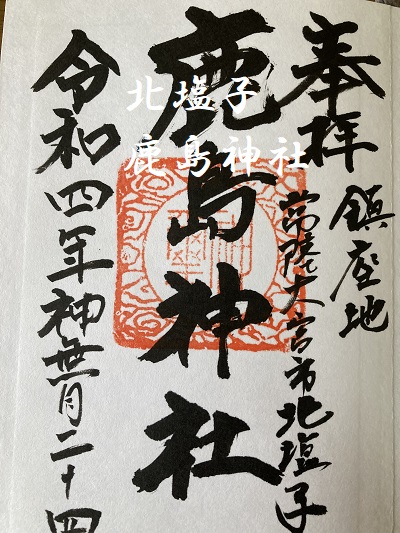 奉拝
鎮座地
常陸大宮市北塩子
鹿島神社
令和四年神無月二十四
北塩子
鹿島神社